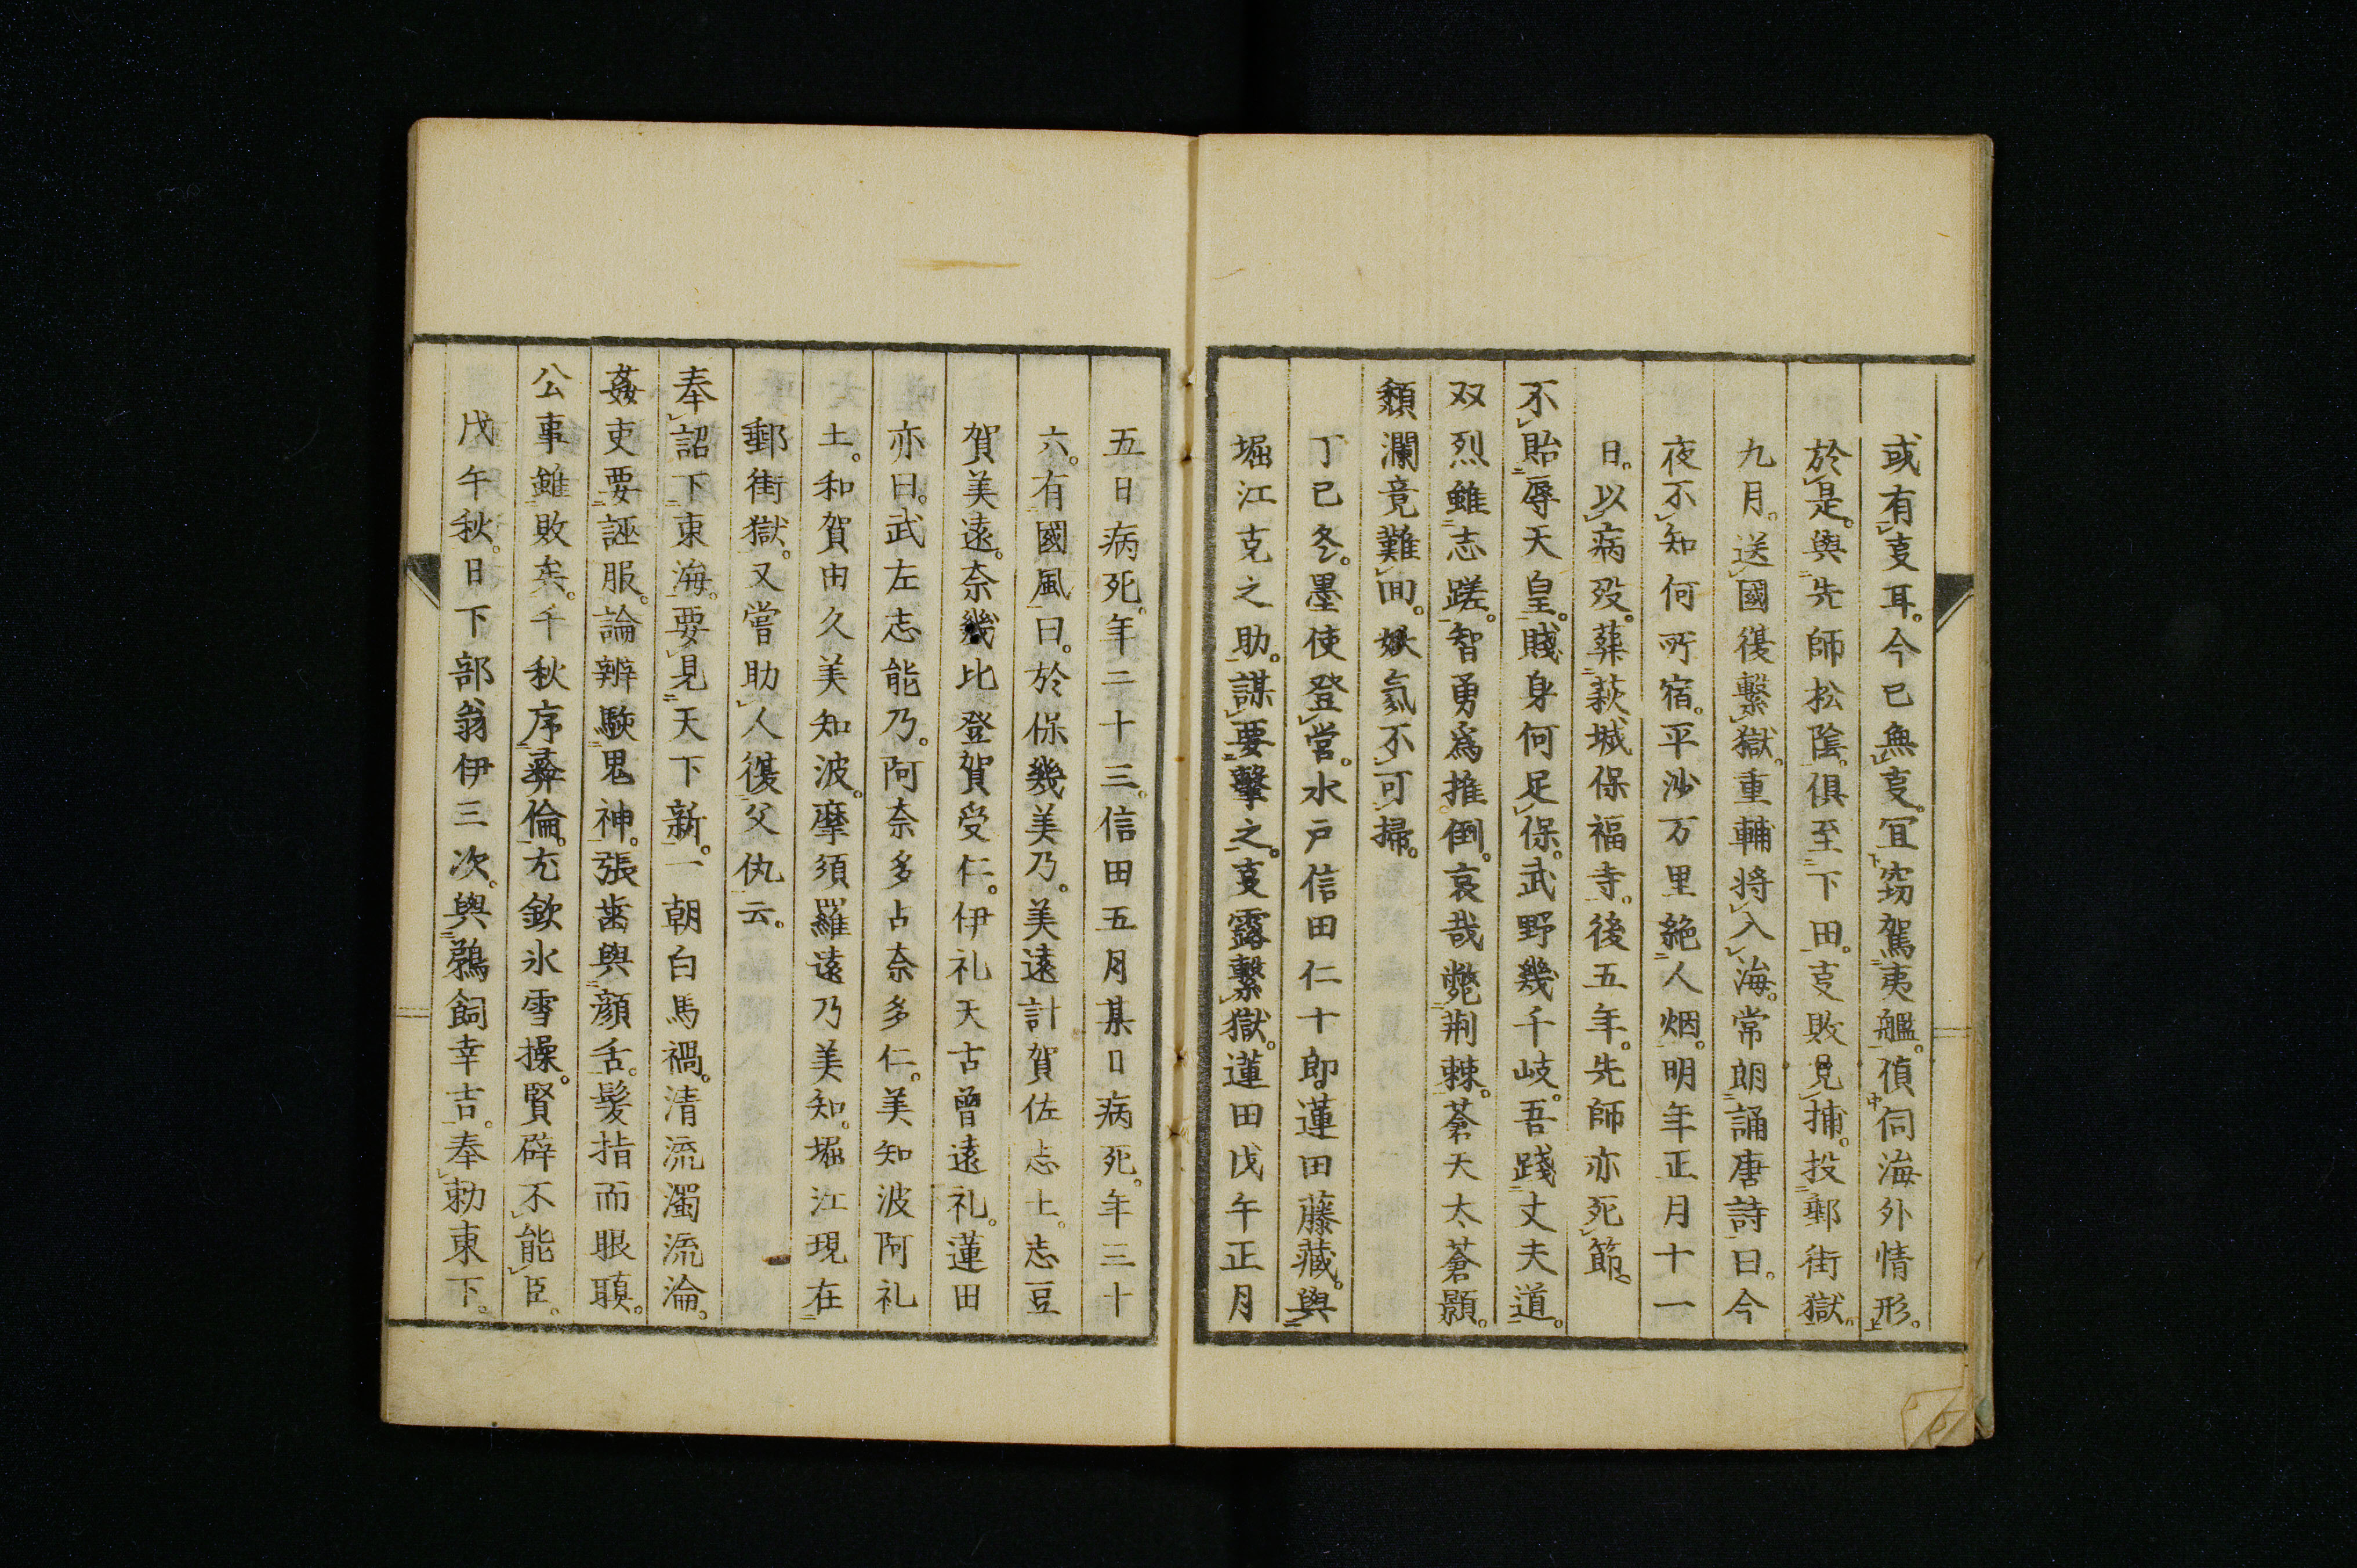 或有㕝耳。今已無㕝。宜窃駕夷艦。偵伺海外情形。
於是。與先師松陰。俱至下田。㕝敗見捕。投郵街獄。
九月。送國復繫獄。重輔將入海。常朗誦唐詩曰。今
夜不知何所宿。平沙万里絶人烟。明年正月十一
日。以病歿。葬萩城保福寺。後五年。先師亦死節。
不貽辱天皇。賤身何足保。武野幾千岐。吾踐丈夫道。
双烈雖志蹉。智勇爲推倒。哀哉斃荊棘。蒼天太蒼顥。
頽瀾竟難回。妖氛不可掃。
丁巳冬。墨使登営。水戸信田仁十郎。蓮田藤藏。與
堀江克之助。謀要擊之。㕝露繫獄。蓮田戊午正月
五日病死。年二十三。信田五月某日病死。年三十
六。有國風曰。於保幾美乃。美遠計賀佐志止。志豆
賀美遠。奈幾比登賀受仁。伊礼天古曾遠礼。蓮田
亦曰。武左志能乃。阿奈多占奈多仁。美知波阿礼
土。和賀由久美知波。摩須羅遠乃美知。堀江現在
郵街獄。又嘗助人復父仇云。
奉詔下東海。要見天下新。一朝白馬禍。清流濁流淪。
姦吏要誣服。論辨駭鬼神。張齒與顔舌。髮指而眼瞋。
公事雖敗矣。千秋序彝倫。尤欽氷雪操。賢辟不能臣。
戊午秋。日下部翁伊三次。與鵜飼幸吉。奉勅東下。